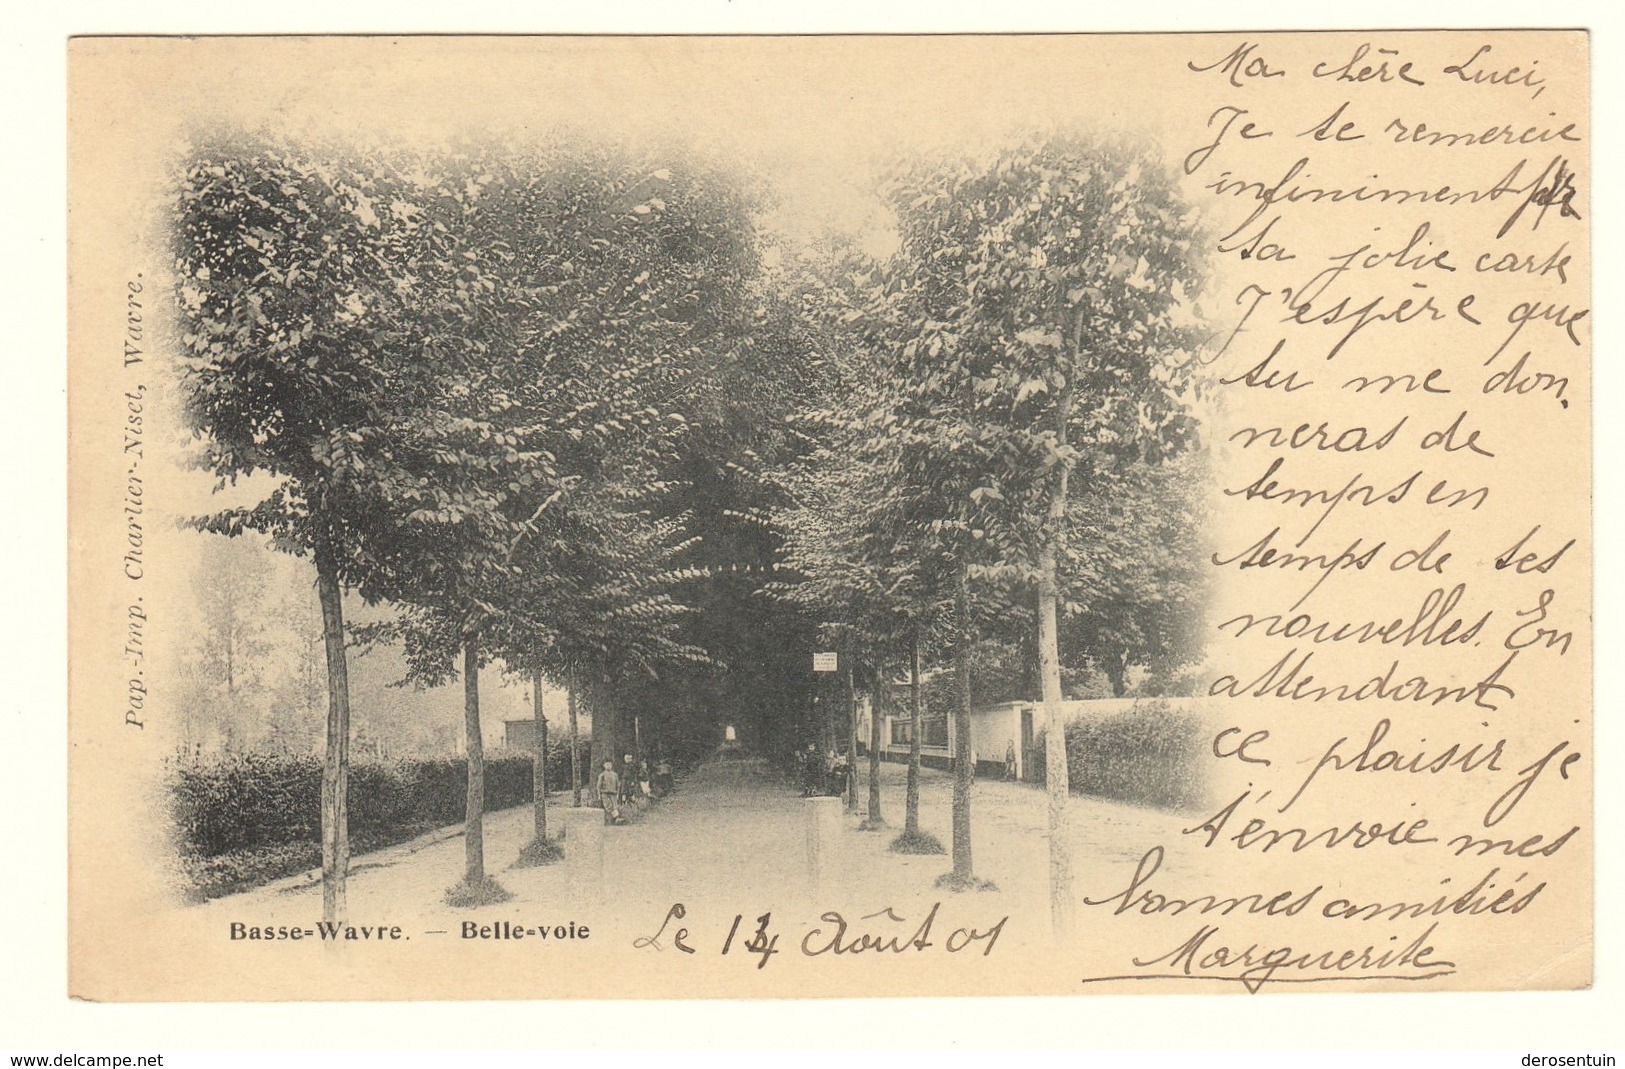 Ma chère Luci,
Je te remercie
infiniment pr
ta jolie carte
J'espère que
tu me don-
neras de
temps en
temps de tes
nouvelles. En
attendant
ce plaisir je
t'envoie mes
bonnes amitiés
Marguerite
Pap.-Imp. Charlier-Niset, Wavre.
Basse=Wavre. — Belle=voie
Le 14 Août 01
www.delcampe.net
derosentuin